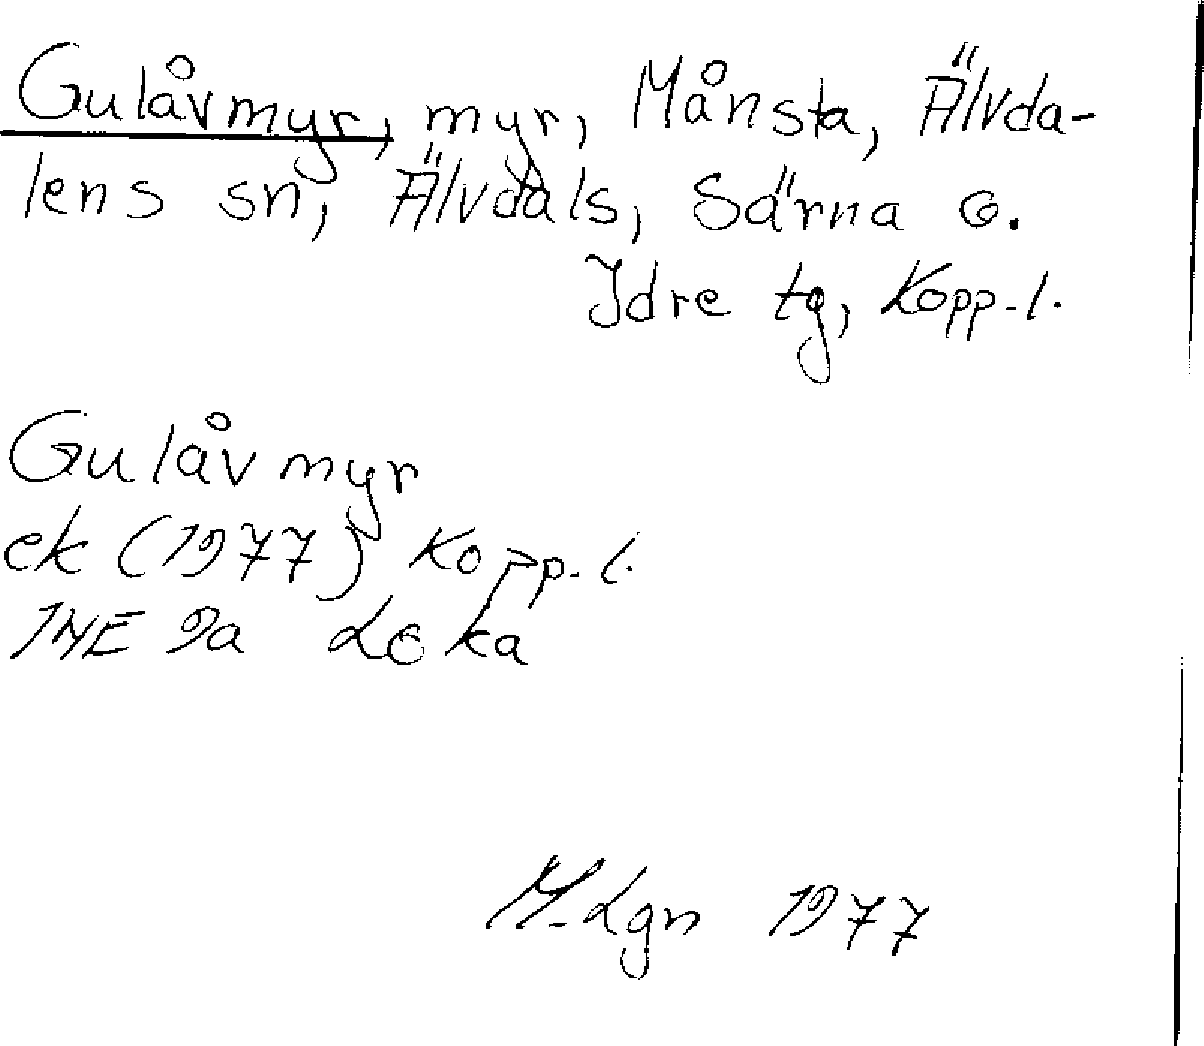 Gulåvmyr, myr, Månsta, Älvda-
lens sn, Älvdals, Särna o.
Idre tg, Kopp.l.
Gulåvmyr
ek (1977) Kopp.l.
14E 9a Loka
M.Lgn 1977